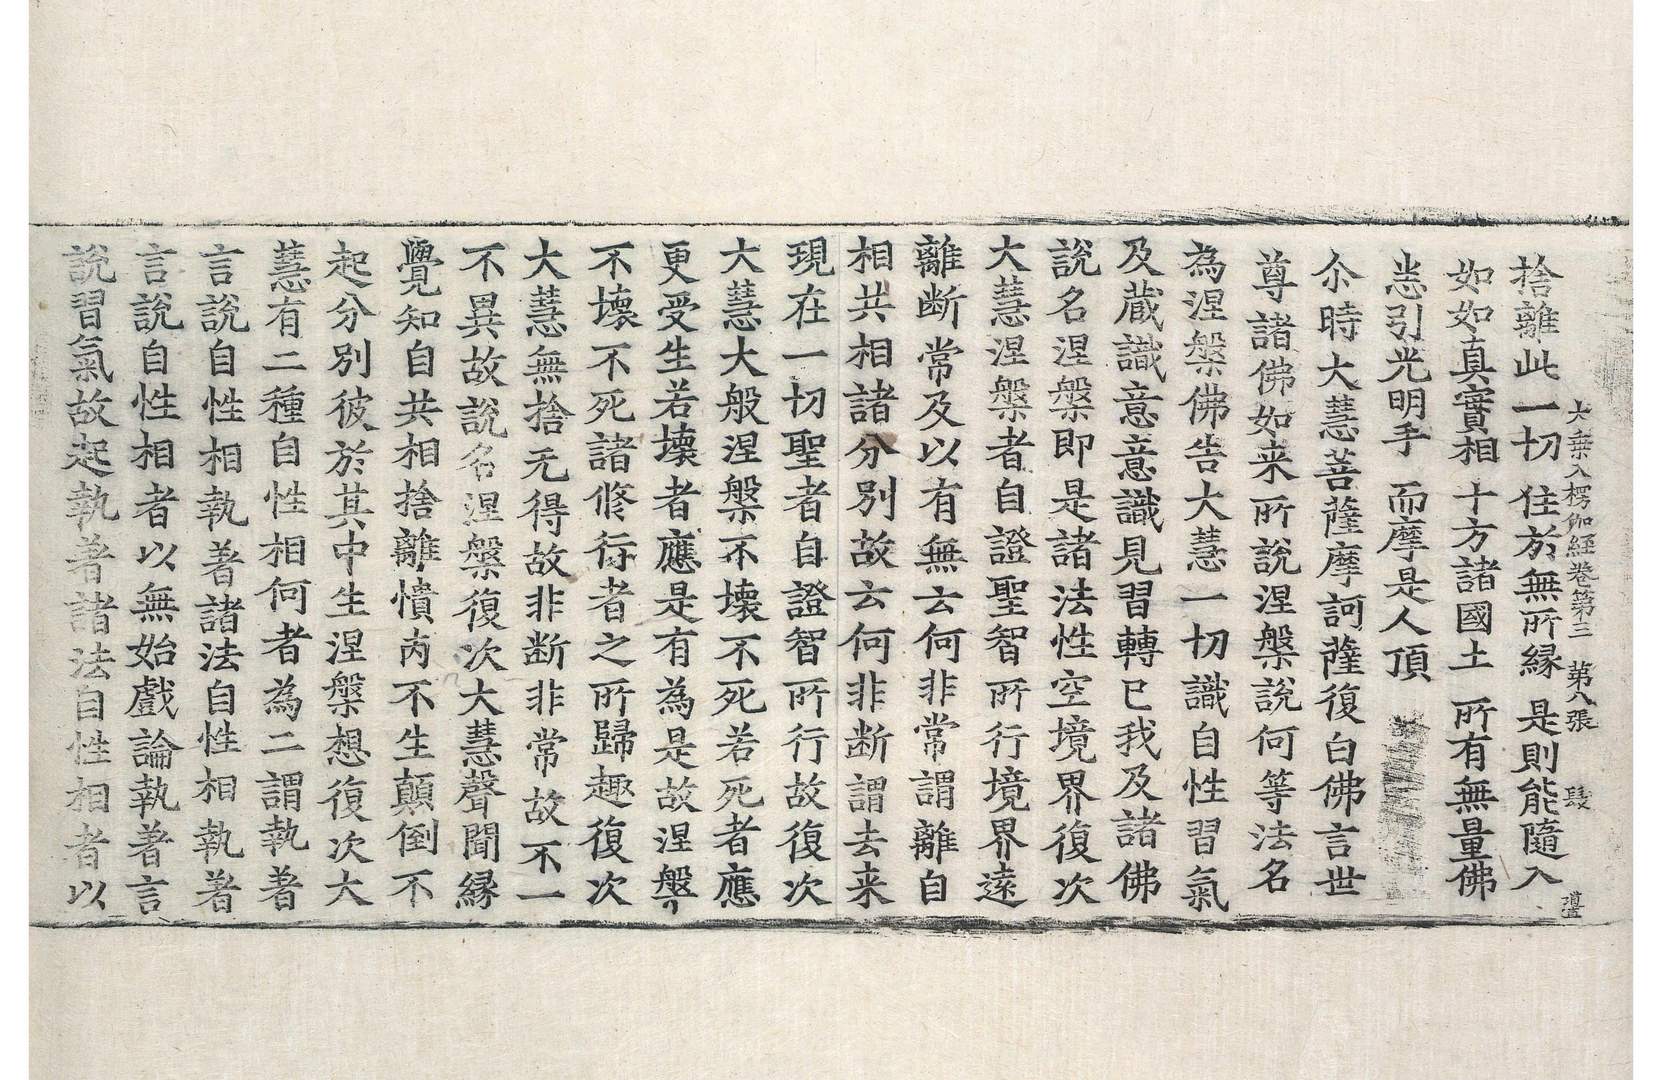 大乗入楞伽經卷第三 第八張 叚
捨離此一切 住於無所縁 是則能隨入
如如真實相 十方諸國土 所有無量佛
悉引光明手 而摩是人頂
尒時大慧菩薩摩訶薩復白佛言世
尊諸佛如来所說涅槃說何等法名
為涅槃佛告大慧一切識自性習氣
及蔵識意意識見習轉已我及諸佛
說名涅槃即是諸法性空境界復次
大慧涅槃者自證聖智所行境界遠
離断常及以有無云何非常謂離自
相共相諸分別故云何非断謂去来
現在一切聖者自證智所行故復次
大慧大般涅槃不壞不死若死者應
更受生若壞者應是有為是故涅槃
不壞不死諸修行者之所歸趣復次
大慧無捨无得故非断非常故不一
不異故說名涅槃復次大慧聲聞縁
覺知自共相捨離憒丙不生顛倒不
起分別彼於其中生涅槃想復次大
慧有二種自性相何者為二謂執著
言說自性相執著諸法自性相執著
言說自性相者以無始戲論執著言
說習氣故起執著諸法自性相者以